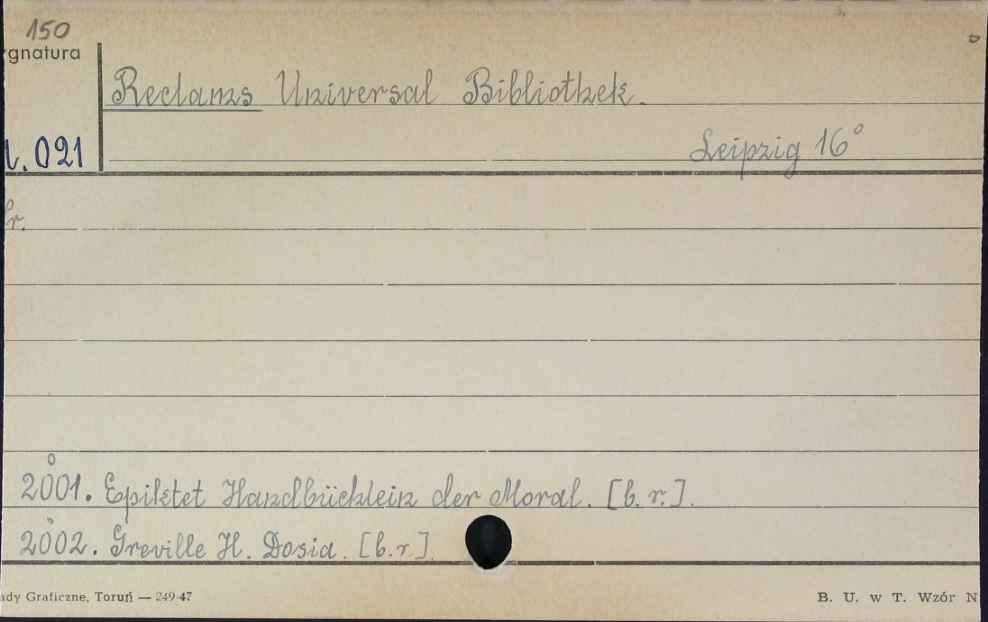 150
gnatura
Reclams Universal Bibliothek.
021
Leipzig 16°
2001. Epiktet Handbüchlein der Moral. [b. r.].
2002. Greville H. Dosia. [b. r.]
ady Graficzne, Toruń — 249-47
B. U. w T. Wzór N